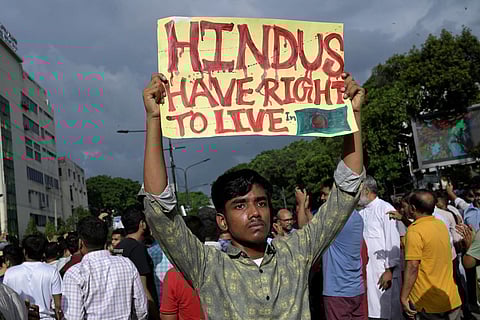 HINDUS
HAVE RIGHT
TO LIVE In